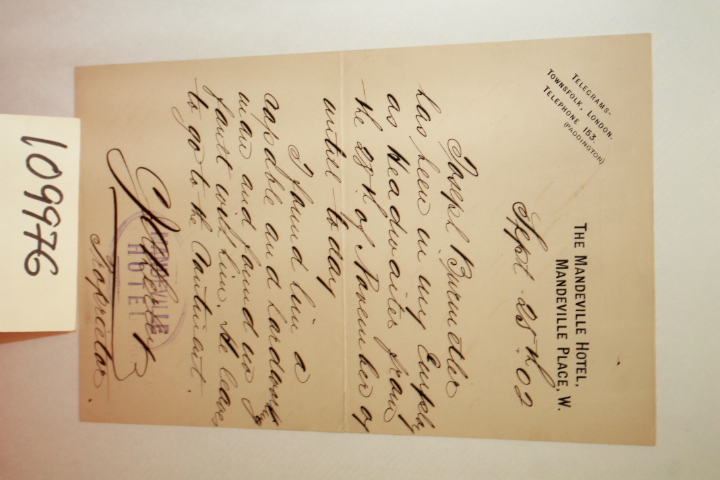 109976
TELEGRAMS-
TOWNSFOLK, LONDON.
TELEPHONE 153.
(PADDINGTON)
THE MANDEVILLE HOTEL,
MANDEVILLE PLACE, W.
Sept 28th 02
Joseph
has been in my Employ
as headwaiter from
the 28th of November 01
until to day
I found him a
capable and hardworking
man and found no
fault with him. He leaves
to go to the Continent.
MANDEVILLE
HOTEL
Proprietor